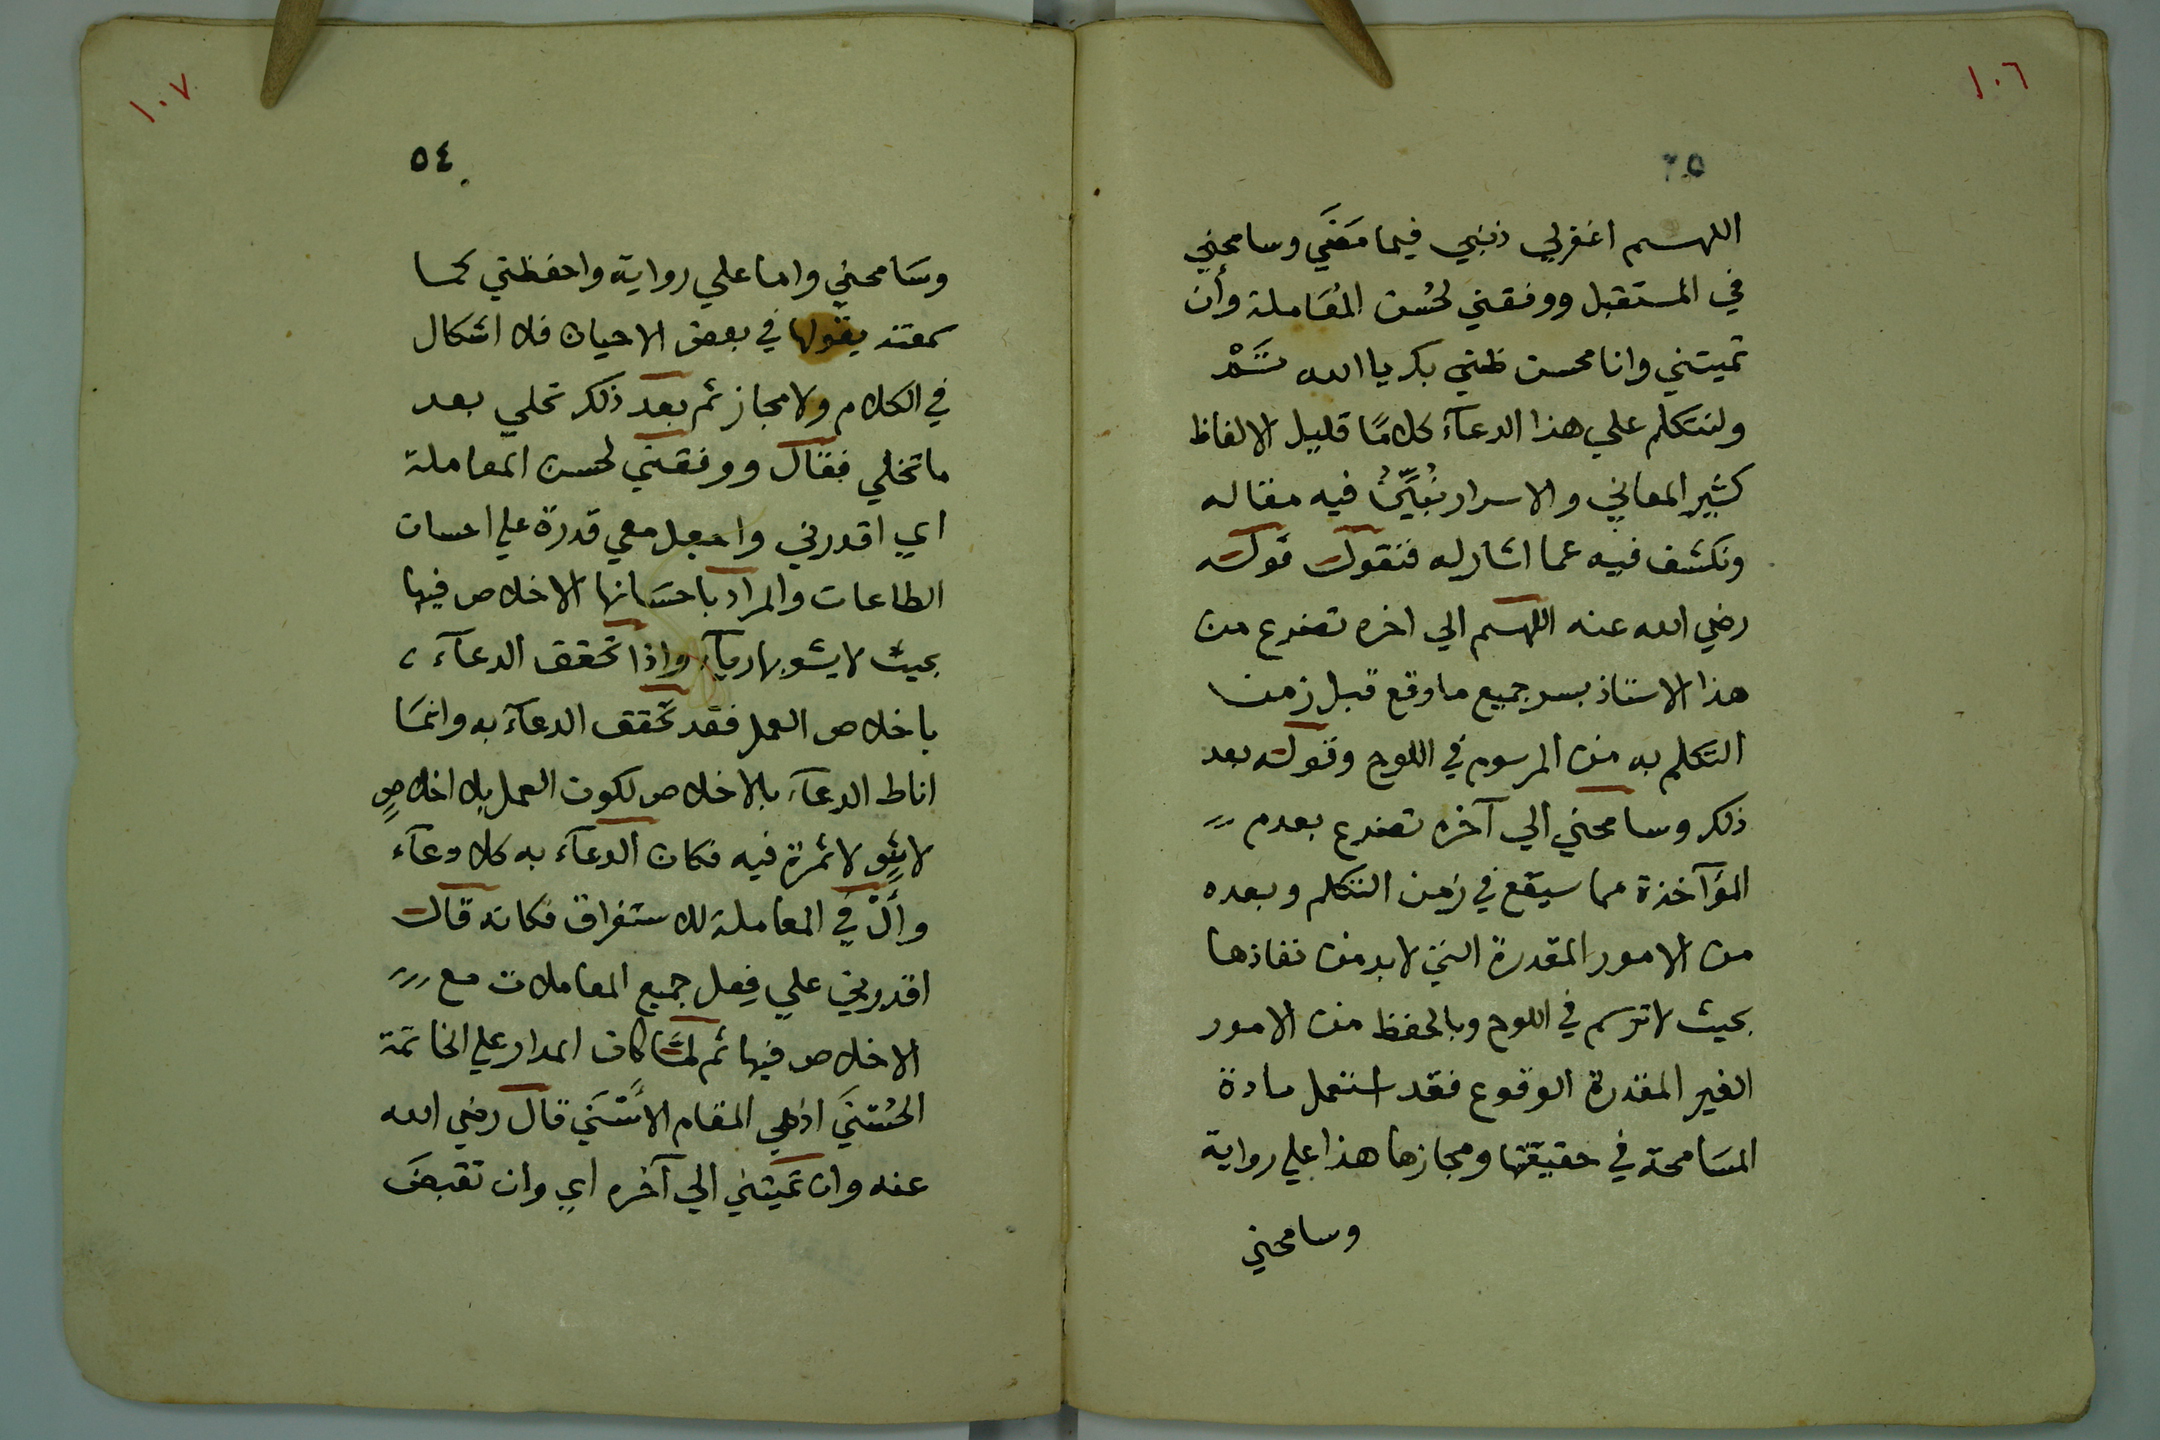 ١٠٦
اللهم اغفرلي ذنبي فيما مَضَي وسامحني
في المستقبل ووفقني لحُسن المُعَاملة وأن
تميتني وانا محسن ظني بك يا الله
ولنتكلم علي هذا الدعآء كلامًا قليل الالفاظ
كثير المعاني والاسرار نُبيِّنُ فيه مقاله
ونكشف فيه عما اشار له فنقول قوله
رضي الله عنه اللهم الي اخره تضرع من
هذا الاستاذ بسر جميع ما وقع قبل زمن
التكلم به من المرسوم في اللوح وقوله بعد
ذلك وسامحني الي آخره تضرع بعدم
المؤآخذة مما سيقع في زمن التكلم وبعده
من الامور المقدرة التي لابد من نفاذها
بحيث لا ترسم في اللوح وبالحفظ من الامور
الغير المقدرة الوقوع فقد استعمل مادة
المسَامحة في حقيقتها ومجازها هذا علي رواية
وسامحني
١٠٧
٥٤
وسَامحني واما علي رواية واحفظني كما
سمعته يقولها في بعض الاحيان فلا اشكال
في الكلام ولا مجاز ثم بعد ذلك تحلي بعد
ما تخلي فقال ووفقني لحسن المعاملة
اي اقدرني واجعل معي قدرة علي احسان
الطاعات والمراد باحسَانها الاخلاص فيها
بحيث لا يشوبها ريآء واذا تحقق الدعآء
باخلاص العمل فقد تحقق الدعآء به وانمَا
اناط الدعآء بالاخلاص لكون العمل بلا اخلاصٍ
لا شئ لا ثمرة فيه فكان الدعآء به كلا دعآء
وألْ في المعاملة للاستغراق فكانه قال
اقدرني علي فِعل جميع المعاملات مع
الاخلاص فيها ثم لمَّا كان المدار علي الخاتمة
الحُسْنَي اذ هي المقام الاَسْنَي قال رضي الله
عنه وان تميتني الي آخره اي وان تقبضَ